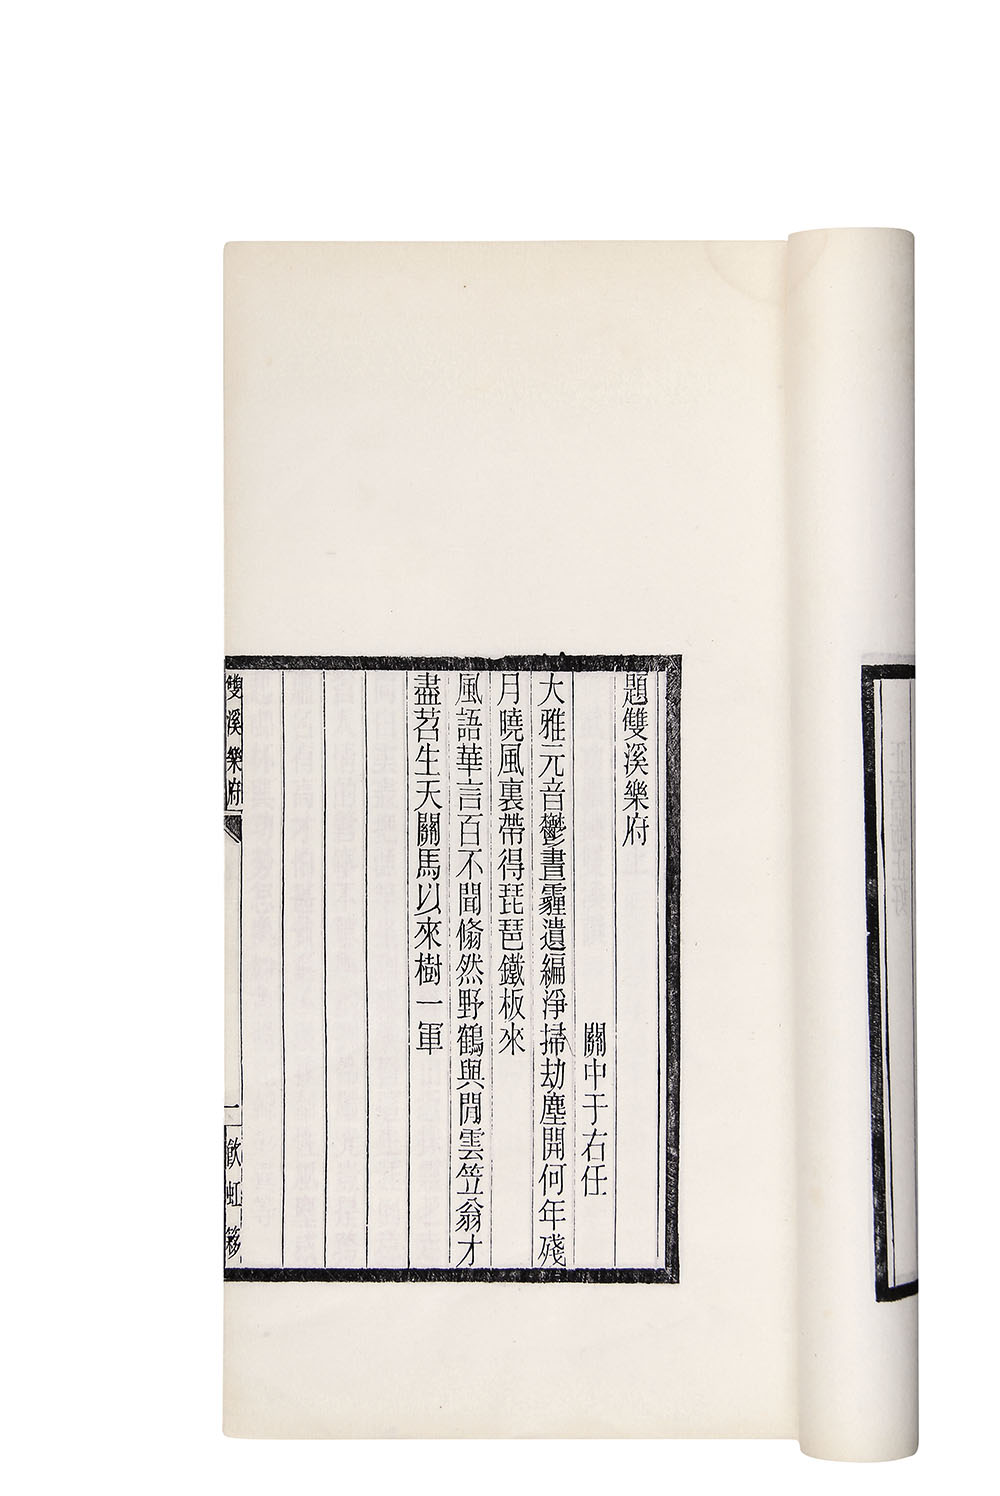 題雙溪樂府
關中于右任
大雅元音鬱晝霾遺編淨掃劫塵開何年殘
月曉風裏帶得琵琶鐵板來
風語華言百不聞翛然野鶴與閒雲笠翁才
盡苕生天關馬以來樹一軍
雙溪樂府
一 飲虹簃